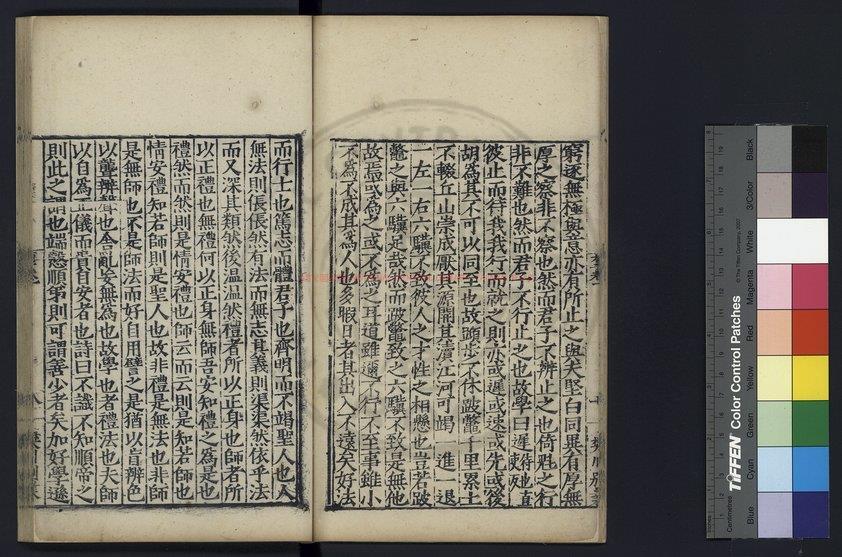 窮逐無極與意亦有所止之與夫堅白同異有厚無
厚之察非不察也然而君子不辨止之也倚魁之行
非不難也然而君子不行止之也故學曰遲彼止
彼止而待我我行而就之則亦或遲或速或先或後
胡為其不可以同至也故蹞步不休跛鼈千里累土
不輟丘山崇成厭其源開其瀆江河可竭一進一退
一左一右六驥不致彼人之才性之相懸也豈若跛
鼈之與六驥足哉然而跛鼈致之六驥不致是無他
故焉或為之或不為之耳道雖邇不行不至事雖小
不為不成其為人也多暇日者其出入不遠矣好法
而行士也篤志而體君子也齊明而不竭聖人也人
無法則倀倀然有法而無志其義則渠渠然依乎法
而又深其類然後温温然禮者所以正身也師者所
以正禮也無禮何以正身無師吾安知禮之為是也
禮然而然則是情安禮也師云而云則是知若師也
情安禮知若師則是聖人也故非禮是無法也非師
是無師也不是師法而好自用譬之是猶以盲辨色
以聾辨聲也舍亂妄無為也故學也者禮法也夫師
以自為正儀而貴自安者也詩曰不識不知順帝之
則此之謂也端慤順弟則可謂善少者矣加好學遜
TIFFEN Color Control Patches
© The Tiffen Company, 2007
Centimetres
Blue
Cyan
Green
Yellow
Red
Magenta
White
3/Color
Black